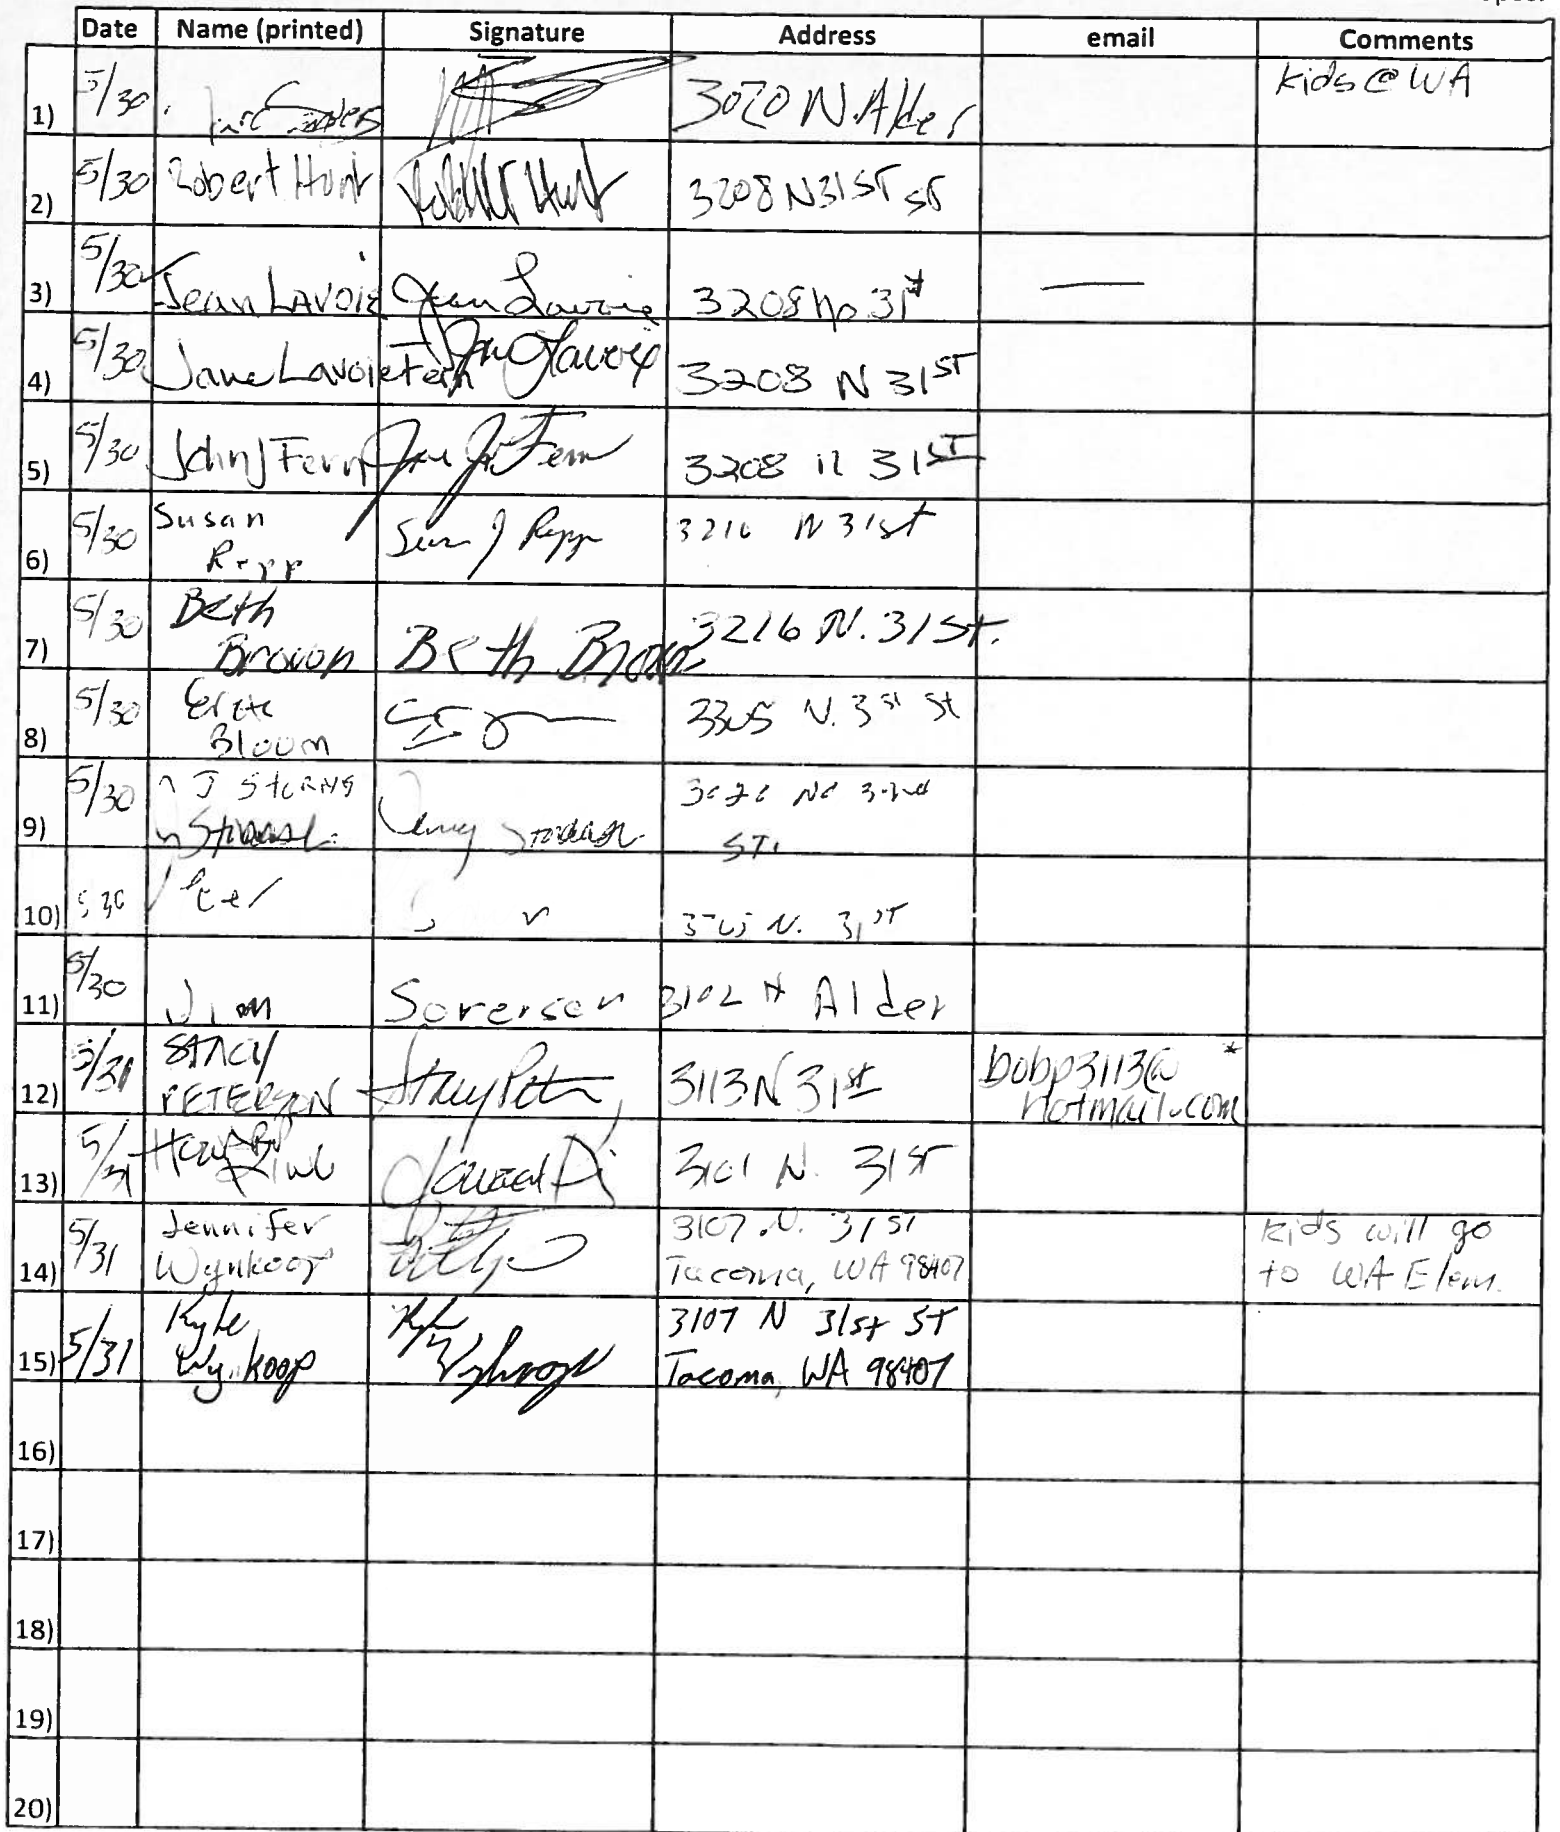 Date Name (printed) Signature Address email Comments
1) 5/30 3020 N. Alder kids @ WA
2) 5/30 Robert Hunt Robert Hunt 3208 N 31ST ST
3) 5/30 Jean LAVOIE Jean Lavoie 3208 No 31st —
4) 5/30 Jane Lavoie Fern Jane Lavoie 3208 N 31ST
5) 5/30 John J Fern 3208 N 31ST
6) 5/30 Susan
Repp 3216 N 31st
7) 5/30 Beth
Brown Beth Brown 3216 N. 31st.
8) 5/30
Bloom N. 3st St
9) 5/30
ST.
10) 5 30 N. 31ST
11) 5/30 Jim Sorensen 3102 N Alder
12) 5/31 STACY
PETERSON Stacy Peterson 3113 N 31st bobp3113@ *
hotmail.com
13) 5/31 3101 N. 31ST
14) 5/31 Jennifer
Wynkoop 3107 N. 31ST
Tacoma, WA 98407 kids will go
to WA Elem.
15) 5/31 Kyle
Wynkoop Kyle
Wynkoop 3107 N 31st ST
Tacoma, WA 98407
16)
17)
18)
19)
20)